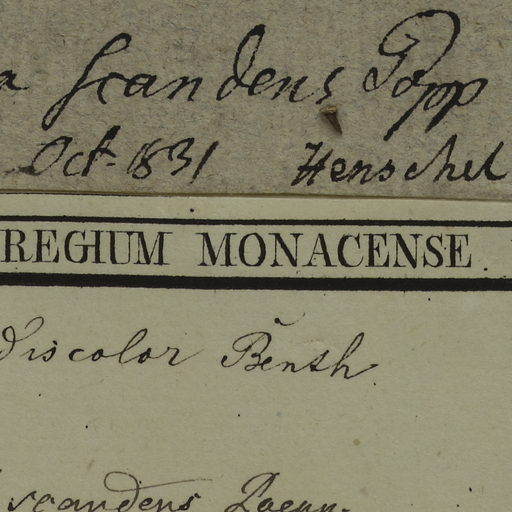 a scandens Pöpp
Oct. 1831 Henschel
REGIUM MONACENSE.
discolor Benth
scandens Poepp.